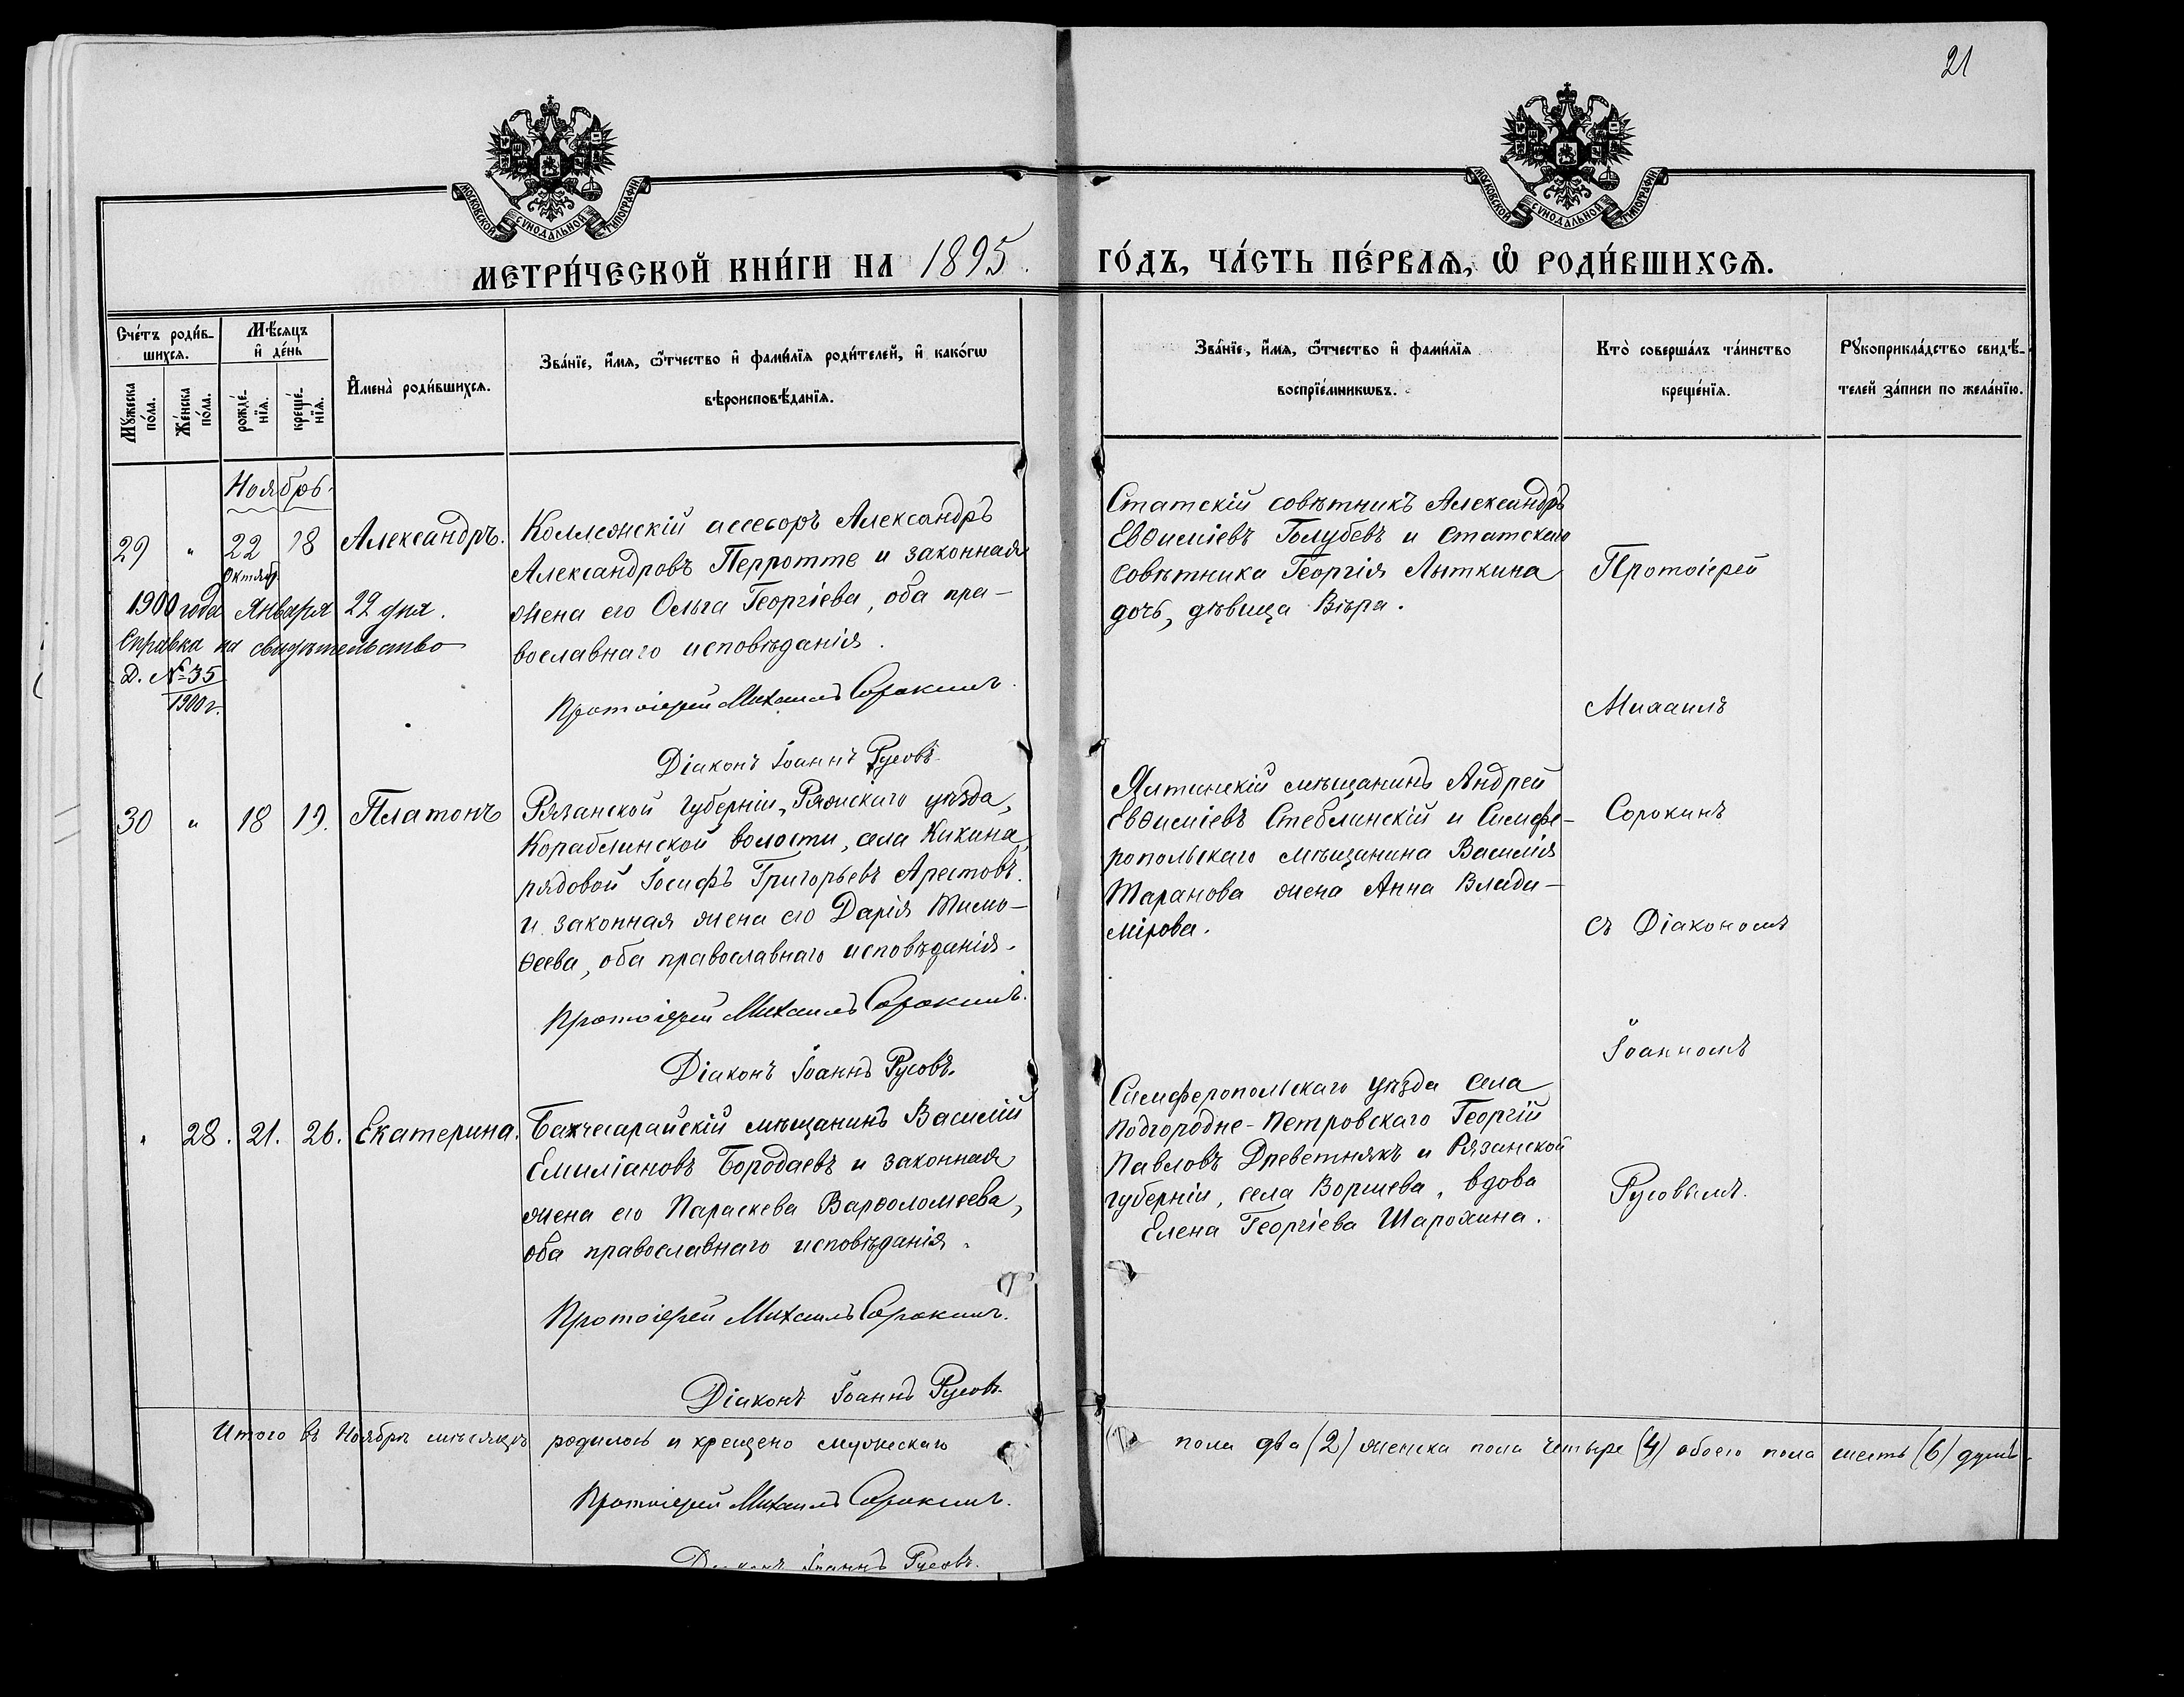 21
МОСКОВСКОЙ СѴНОДАЛЬНОЙ ТИПОГРАФІИ
МОСКОВСКОЙ СѴНОДАЛЬНОЙ ТИПОГРАФІИ
МЕТРИ́ЧЕСКОЙ КНИ́ГИ НА 1895. ГО́ДЪ, ЧА́СТЬ ПЕ́РВАѦ, Ѡ҆ РОДИ́ВШИХСѦ.
Сче́тъ роди́в-
шихсѧ.
Мꙋ́жеска
по́ла.
Же́нска
по́ла.
Мѣ́сѧцъ
и҆ де́нь
рожде́-
нїѧ.
креще́-
нїѧ.
И҆мена̀ роди́вшихсѧ.
Зва́нїе, и҆́мѧ, ѻ҆́тчество и҆ фами́лїѧ роди́телей, и҆ како́гѡ
вѣроисповѣ́данїѧ.
Зва́нїе, и҆́мѧ, ѻ҆́тчество и҆ фами́лїѧ
воспрїе́мникѡвъ.
Кто̀ соверша́лъ та́инство
креще́нїѧ.
Рꙋкоприкла́дство свидѣ́-
телей за́писи по жела́нїю.
Ноябрь.
29 " 22 18 Александръ.
Октяб.
1900 года Января 22 дня.
Справка на свидѣтельство
Д. № 35
1900 г.
Коллежскій ассесоръ Александръ
Александровъ Перротте и законная
жена его Ольга Георгіева, оба пра-
вославнаго исповѣданія.
Протоіерей Михаилъ Сорокинъ.
Діаконъ Іоаннъ Русовъ.
Статскій совѣтникъ Александръ
Евѳиміевъ Голубевъ и статскаго
совѣтника Георгія Лыткина
дочь, дѣвица Вѣра.
30 " 18 19. Платонъ
Рязанской губерніи, Ряжскаго уѣзда,
Кораблинской волости, села Кикина,
рядовой Іосифъ Григорьевъ Арестовъ
и законная жена его Дарія Тимо-
ѳеева, оба православнаго исповѣданія.
Протоіерей Михаилъ Сорокинъ.
Діаконъ Іоаннъ Русовъ.
Ялтинскій мѣщанинъ Андрей
Евѳиміевъ Стеблинскій и Симфе-
ропольскаго мѣщанина Василія
Таранова жена Анна Влади-
мірова.
" 28. 21. 26. Екатерина.
Бахчесарайскій мѣщанинъ Василій
Емиліановъ Бородаевъ и законная
жена его Параскева Варѳоломеева,
оба православнаго исповѣданія.
Протоіерей Михаилъ Сорокинъ.
Діаконъ Іоаннъ Русовъ.
Симферопольскаго уѣзда села
Подгородне-Петровскаго Георгій
Павловъ Древетнякъ и Рязанской
губерніи, села Воршева, вдова
Елена Георгіева Шарохина.
Протоіерей
Михаилъ
Сорокинъ
съ Діакономъ
Іоанномъ
Русовымъ.
Итого въ Ноябрѣ мѣсяцѣ родилось и крещено мужескаго пола два (2) женска пола четыре (4) обоего пола шесть (6) душъ.
Протоіерей Михаилъ Сорокинъ.
Діаконъ Іоаннъ Русовъ.